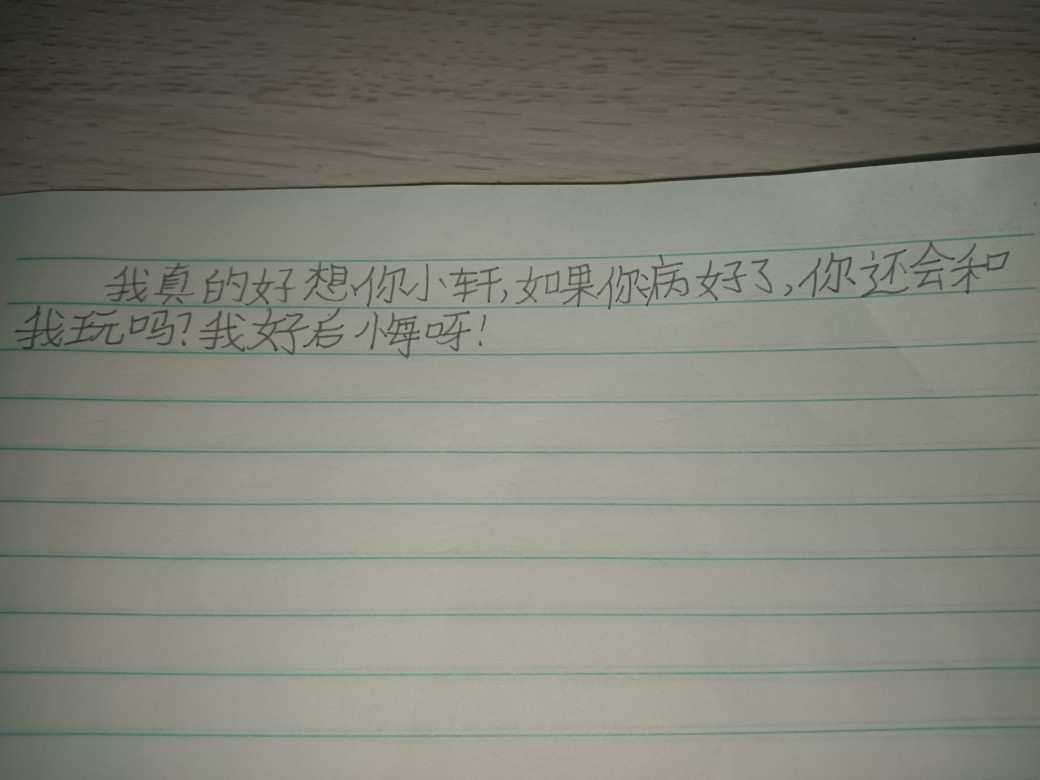 我真的好想你小轩,如果你病好了,你还会和
我玩吗?我好后悔呀!